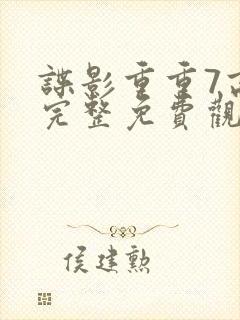 諜影重重7高
完整免費觀
侯建勲